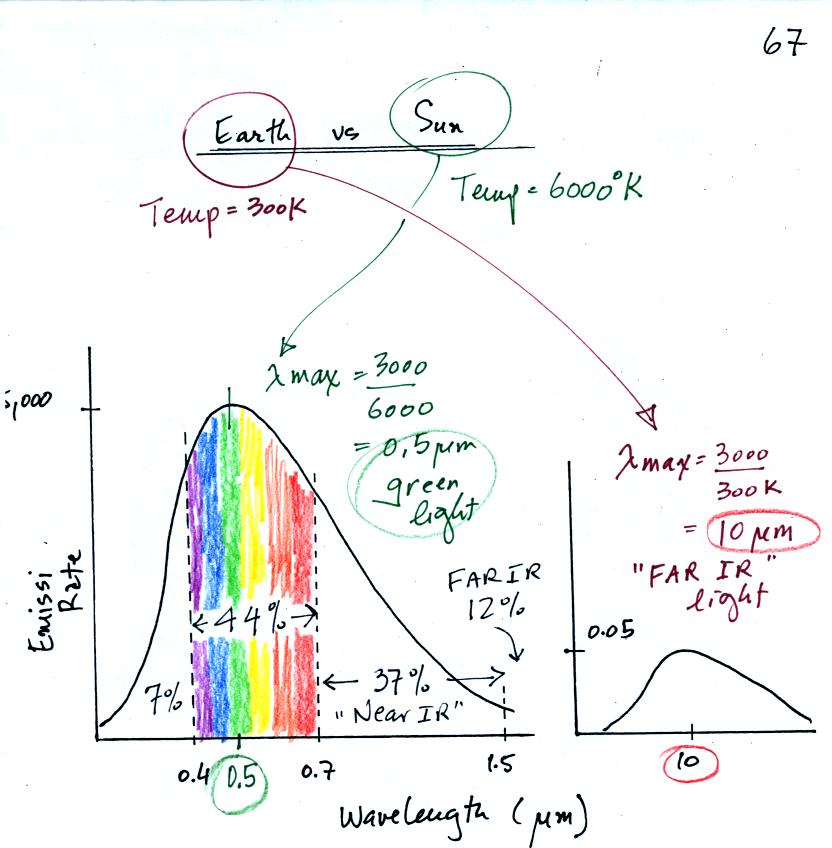 67
Earth vs Sun
Temp = 300K
Temp = 6000°K
λmax = 3000
6000
= 0.5 μm
green
light
λmax = 3000
300K
= 10 μm
"FAR IR"
light
,000
Emissi
Rate
7%
← 44% →
← 37% →
"Near IR"
FAR IR
12%
0.4 0.5 0.7 1.5
Wavelength (μm)
0.05
10